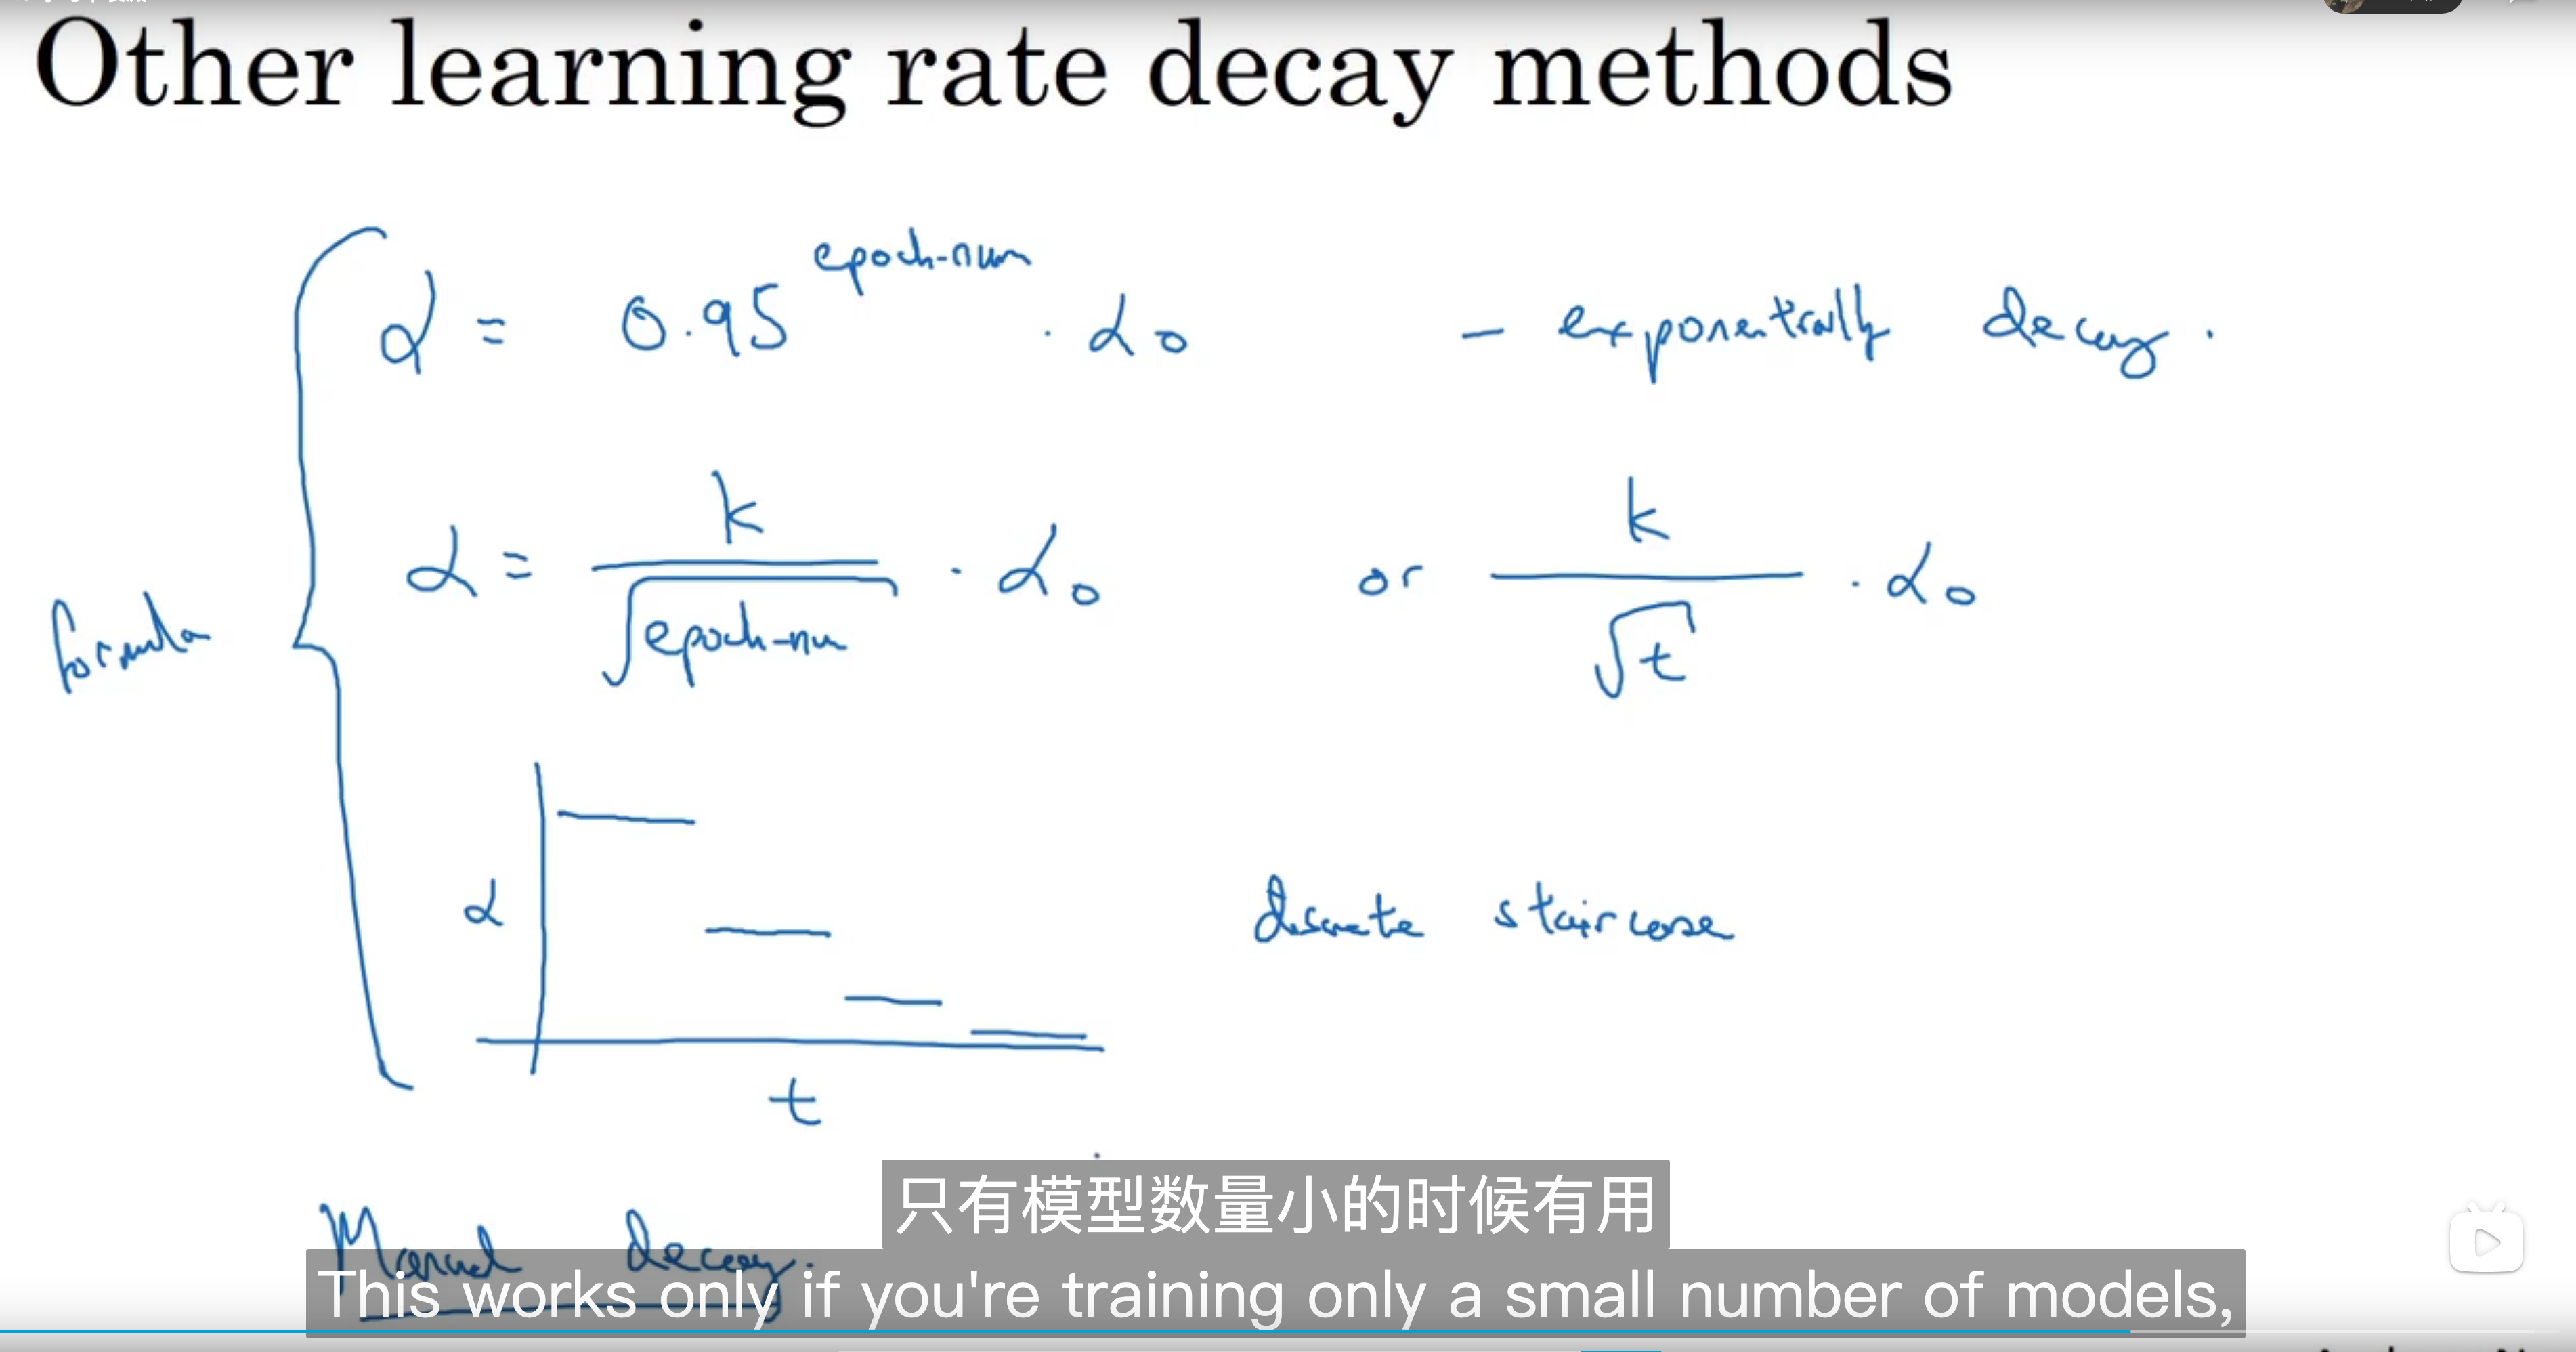 Other learning rate decay methods
α = 0.95^epoch-num · α₀ - exponentially decay.
formula
α = k/√epoch-num · α₀ or k/√t · α₀
α
discrete staircase
t
Manual decay.
只有模型数量小的时候有用
This works only if you're training only a small number of models,